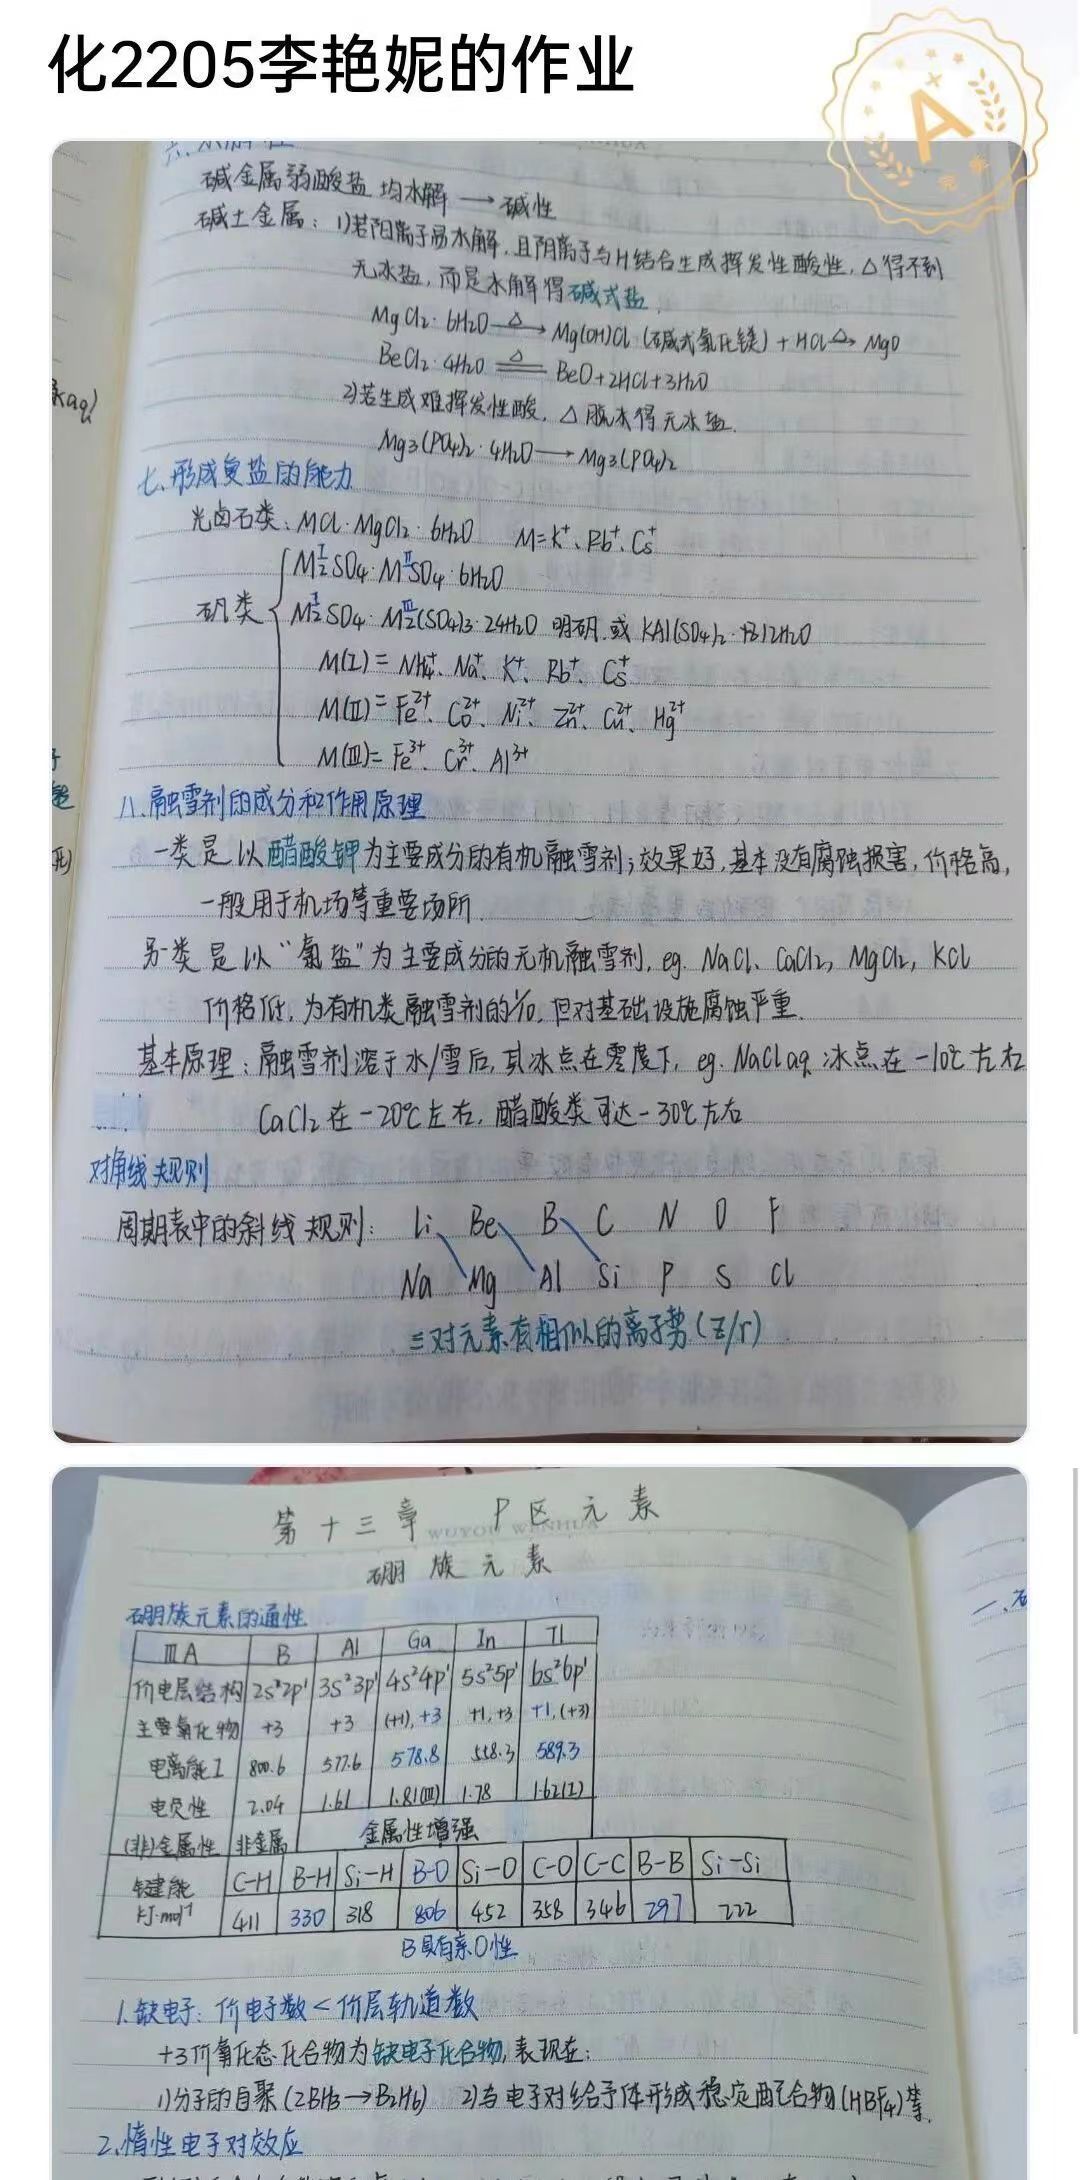 化2205李艳妮的作业
A
完美
碱金属弱酸盐 均水解 → 碱性
碱土金属：1)若阳离子易水解，且阴离子与H结合生成挥发性酸性，△得不到
无水盐，而是水解得碱式盐
MgCl₂·6H₂O —△→ Mg(OH)Cl (碱式氯化镁) + HCl —△→ MgO
BeCl₂·4H₂O =△= BeO+2HCl+3H₂O
2)若生成难挥发性酸，△脱水得无水盐.
Mg₃(PO₄)₂·4H₂O → Mg₃(PO₄)₂
七、形成复盐的能力
光卤石类：MCl·MgCl₂·6H₂O M=K⁺、Rb⁺、Cs⁺
M₂ᴵSO₄·MᴵᴵSO₄·6H₂O
矾类
M₂ᴵSO₄·M₂ᴵᴵᴵ(SO₄)₃·24H₂O 明矾 或 KAl(SO₄)₂·12H₂O
M(I)= NH₄⁺、Na⁺、K⁺、Rb⁺、Cs⁺
M(II)= Fe²⁺、Co²⁺、Ni²⁺、Zn²⁺、Cu²⁺、Hg²⁺
M(III)= Fe³⁺、Cr³⁺、Al³⁺
八、融雪剂的成分和作用原理
一类是以醋酸钾为主要成分的有机融雪剂；效果好，基本没有腐蚀损害，价格高，
一般用于机场等重要场所.
另一类是以“氯盐”为主要成分的无机融雪剂，eg. NaCl、CaCl₂，MgCl₂，KCl
价格低，为有机类融雪剂的1/10，但对基础设施腐蚀严重.
基本原理：融雪剂溶于水/雪后，其冰点在零度下，eg. NaCl aq. 冰点在 -10℃左右
CaCl₂ 在 -20℃左右，醋酸类可达 -30℃左右
对角线规则
周期表中的斜线规则： Li Be B C N O F
Na Mg Al Si P S Cl
三对元素有相似的离子势(Z/r)
第十三章 P区元素
WUYOU WENHUA
硼族元素
硼族元素的通性
ⅢA B Al Ga In Tl
价电层结构 2s²2p¹ 3s²3p¹ 4s²4p¹ 5s²5p¹ 6s²6p¹
主要氧化物 +3 +3 (+1), +3 +1, +3 +1, (+3)
电离能I 800.6 577.6 578.8 558.3 589.3
电负性 2.04 1.61 1.81(III) 1.78 1.62(I)
(非)金属性 非金属 金属性增强
键能 C-H B-H Si-H B-O Si-O C-O C-C B-B Si-Si
kJ·mol⁻¹ 411 330 318 806 452 358 346 297 222
B具有亲O性
1.缺电子：价电子数<价层轨道数
+3价氧化态化合物为缺电子化合物，表现在：
1)分子的自聚(2BH₃→B₂H₆) 2)与电子对给予体形成稳定配合物(HBF₄)等.
2.惰性电子对效应